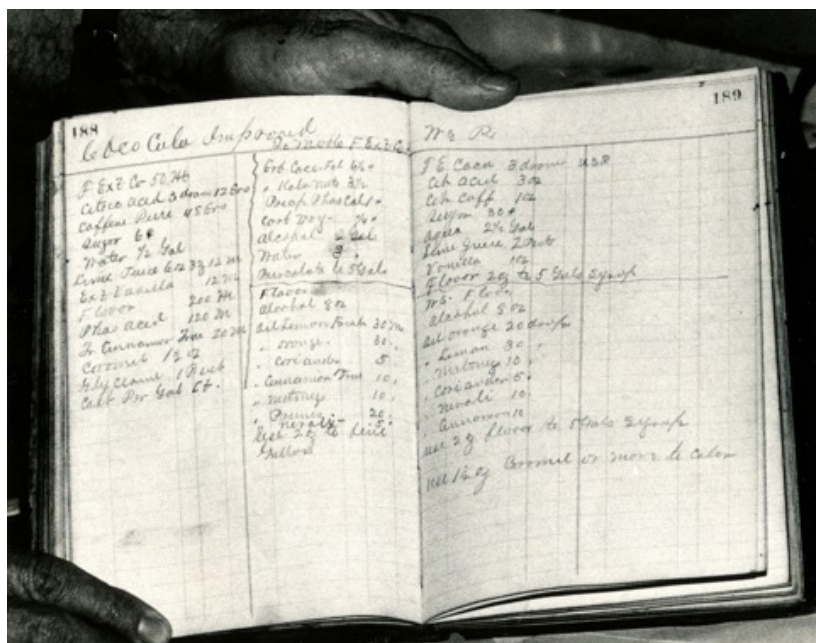 188
Coco Cola Improved
F Ext Co 50
Citric acid 3 dram 12 Gro
Caffeine Pure 45 Gro
Sugar 6#
Water 1/2 Gal
Lime Juice 6 oz
Ext Vanilla 12 M
Flavor 200 M
Phos acid 120 M
Tr Cinnamon True 20 M
Coromel 1 1/2 oz
Glycerine
Cost Per Gal
To Make F Ext Co.
Grd Coca
" Kola nuts 3 1/2
Precip Phos Cal
Alcohol 2 Gal
Water 3 "
Percolate to 5 Gals
Flavor
Alcohol 8 oz
Oil Lemon Fresh 30 M
" orange 30 "
" Coriander 5 "
" Cinnamon True 10 "
" Nutmeg 10 "
" neroli 5 "
Use 2 oz to
Gallons
189
F E Coca 3 drams USP
Cit acid 3 oz
Cit Caff 1 oz
Sugar 30 #
Aqua 2 1/2 Gals
Lime Juice 2 Pints
Vanilla 1 oz
Flavor 2 oz to 5 Gals Syrup
Flavor
Alcohol 8 oz
Oil orange 20 drops
" Lemon 30 "
" Nutmeg 10 "
" Coriander 5 "
" Neroli 10 "
" Cinnamon 10
use 2 oz flavor to 5 Gals Syrup
use 1 1/2 oz or more to color